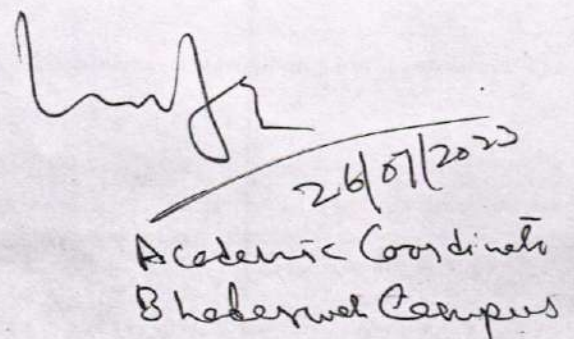 26/07/2023
Academic Coordinator
Bhaderwah Campus